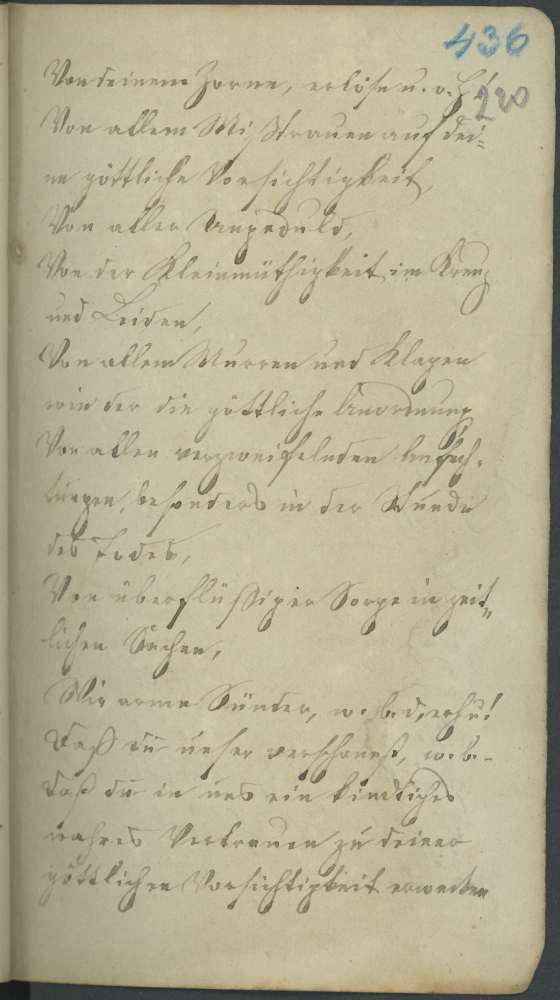 436
Von deinem Zorne, erlöse u. o. H!
220
Von allem Mißtrauen auf dei-
ne göttliche Vorsichtigkeit,
Von aller Ungeduld,
Von der Kleinmüthigkeit im Kreuz
und Leiden,
Von allem Murren und Klagen
wieder die göttliche Anordnung
Von allen verzweifelnden Anfech-
tungen, besonders in der Stunde
des Todes,
Von überflüßiger Sorge in zeit-
lichen Sachen,
Wir arme Sünder, w. b. d, erh. u!
Daß du unser verschonest, w. b.
Daß du in uns ein kindliches
wahres Vertrauen zu deiner
göttlichen Vorsichtigkeit erwecken